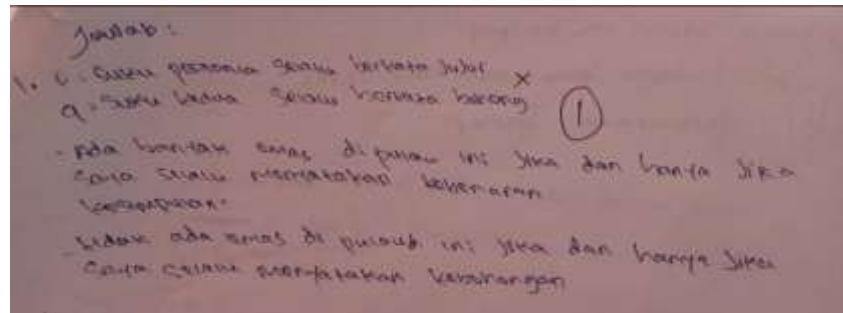 Jawab :
1. i - Suku pertama selalu berkata jujur ×
q - Suku kedua selalu berkata bohong ①
- Ada banyak emas di pulau ini jika dan hanya jika
saya selalu menyatakan kebenaran
kesimpulan.
- tidak ada emas di pulau ini jika dan hanya jika
saya selalu menyatakan kebohongan